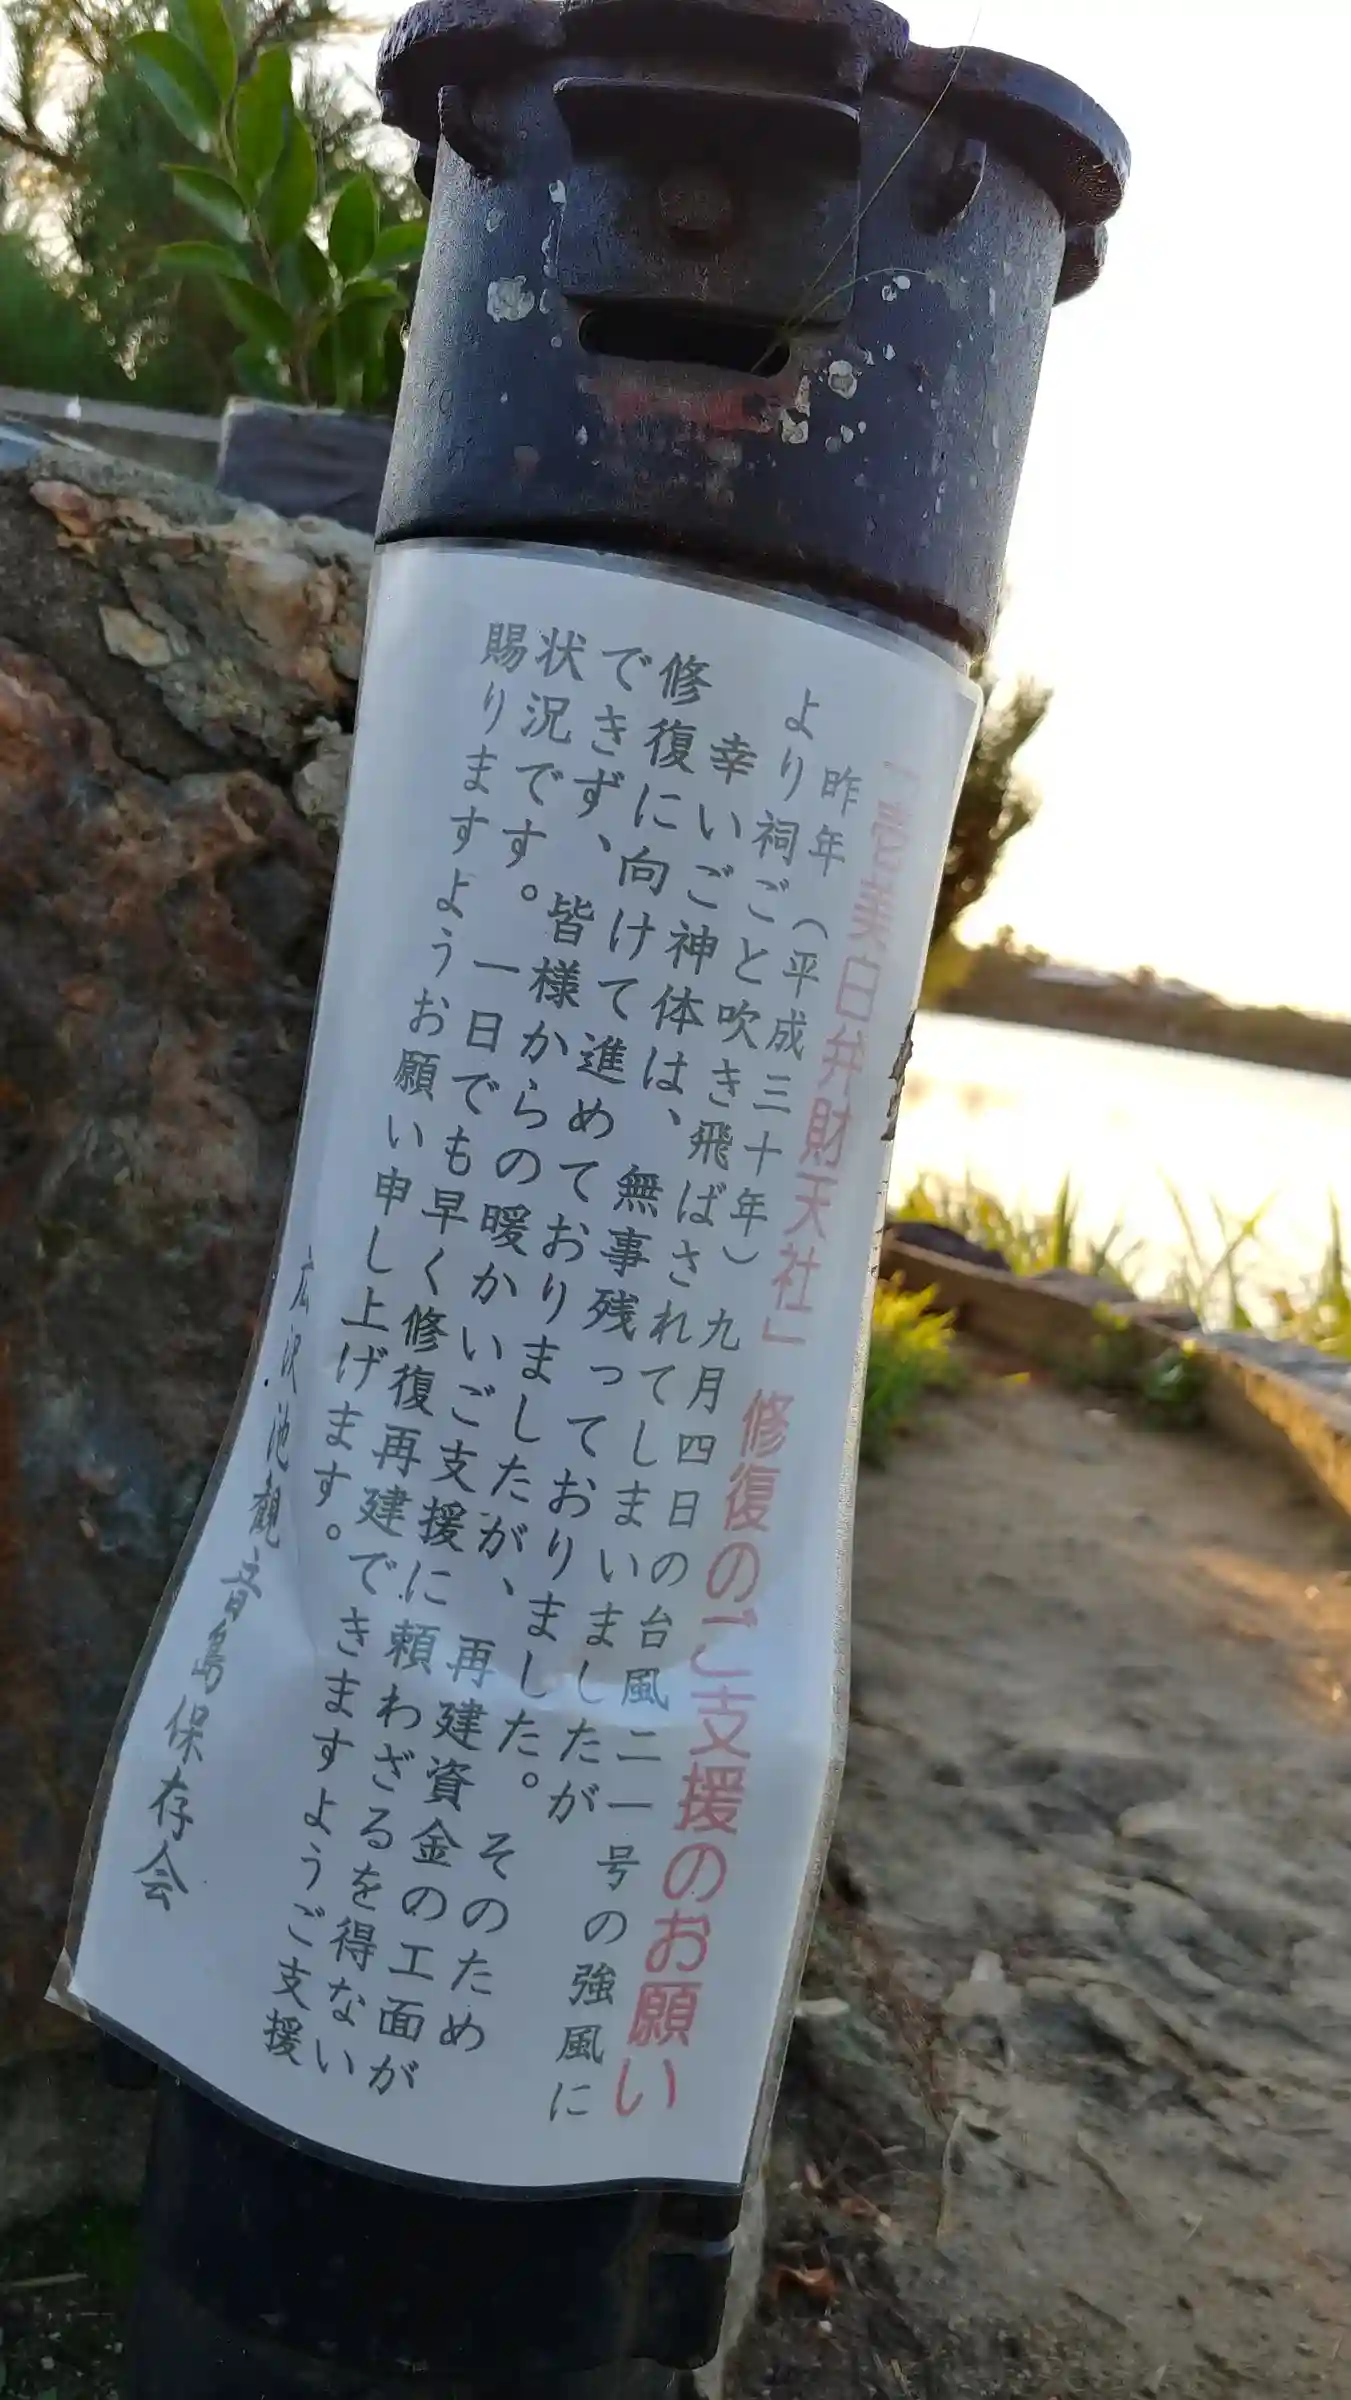 「善業白弁財天社」 修復のご支援のお願い
昨年（平成三十年）九月四日の台風二一号の強風に
より祠ごと吹き飛ばされてしまいましたが
幸いご神体は、無事残っておりました。そのため
修復に向けて進めておりましたが、再建資金の工面が
できず、皆様からの暖かいご支援に頼わざるを得ない
状況です。一日でも早く修復再建できますようご支援
賜りますようお願い申し上げます。
広沢池観音島保存会